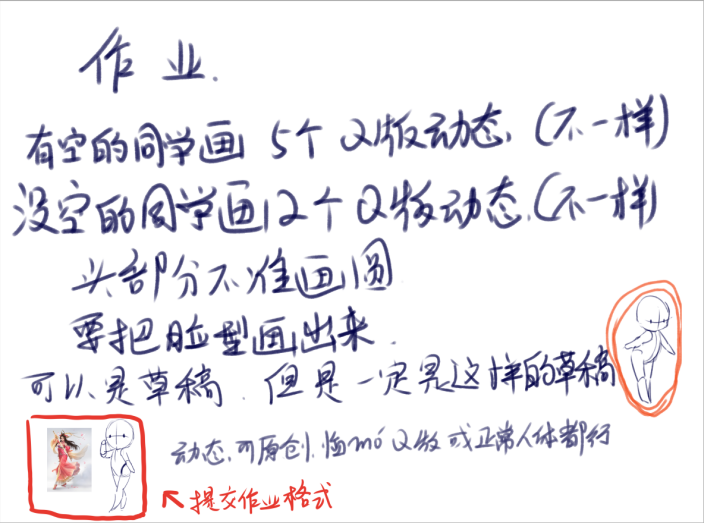 作业.
有空的同学画 5个Q版动态.(不一样)
没空的同学画 2个Q版动态.(不一样)
头部分不准画圆
要把脸型画出来.
可以是草稿.但是一定是这样的草稿
动态.可原创.临mó Q版 或正常人体都行
↖提交作业格式